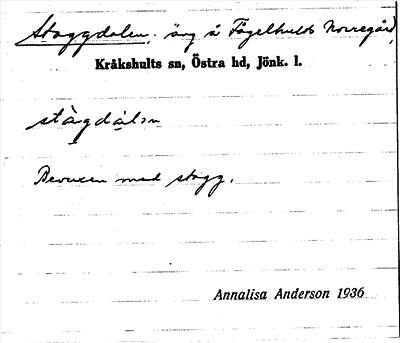 Staggdalen, äng å Fågelhults Norregård,
Kråkshults sn, Östra hd, Jönk. l.
stàgdàlən
Bevuxen med stagg.
Annalisa Anderson 1936